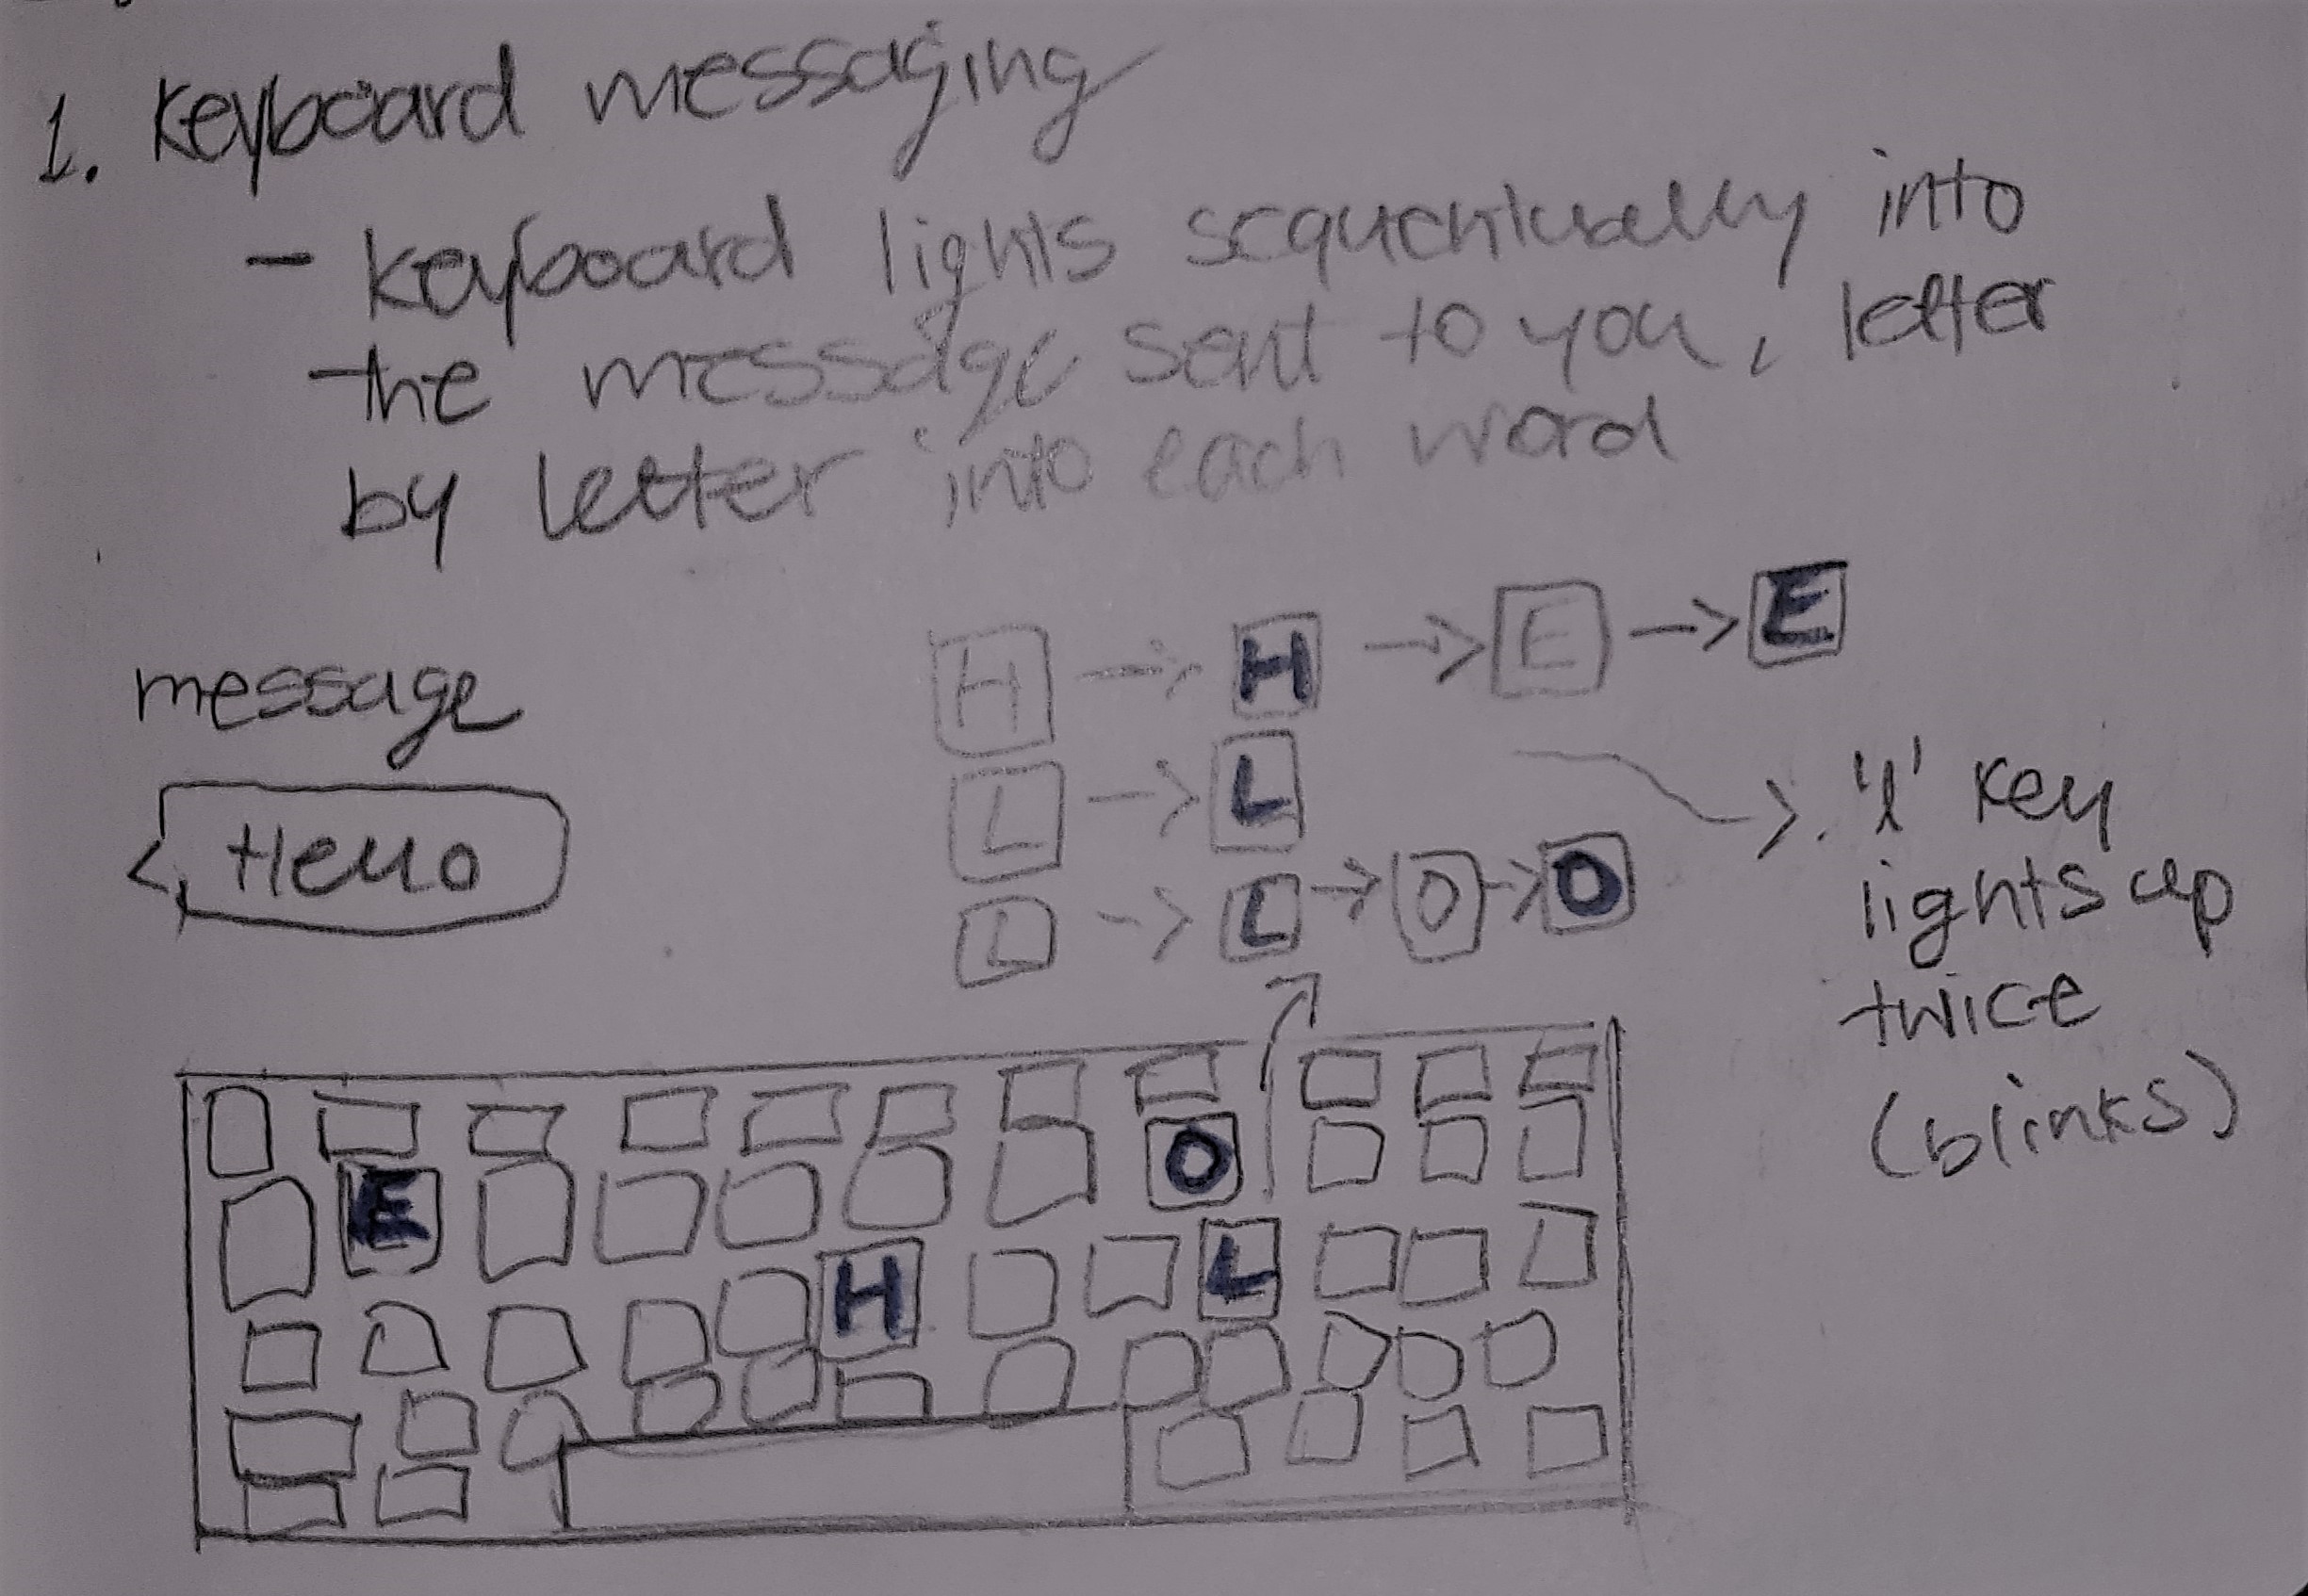 1. Keyboard messaging
- keyboard lights sequentially into
the message sent to you, letter
by letter into each word
message
Hello
H -> H -> E -> E
L -> L
L -> L -> O -> O
-> 'l' key
lights up
twice
(blinks)
O
E
L
H